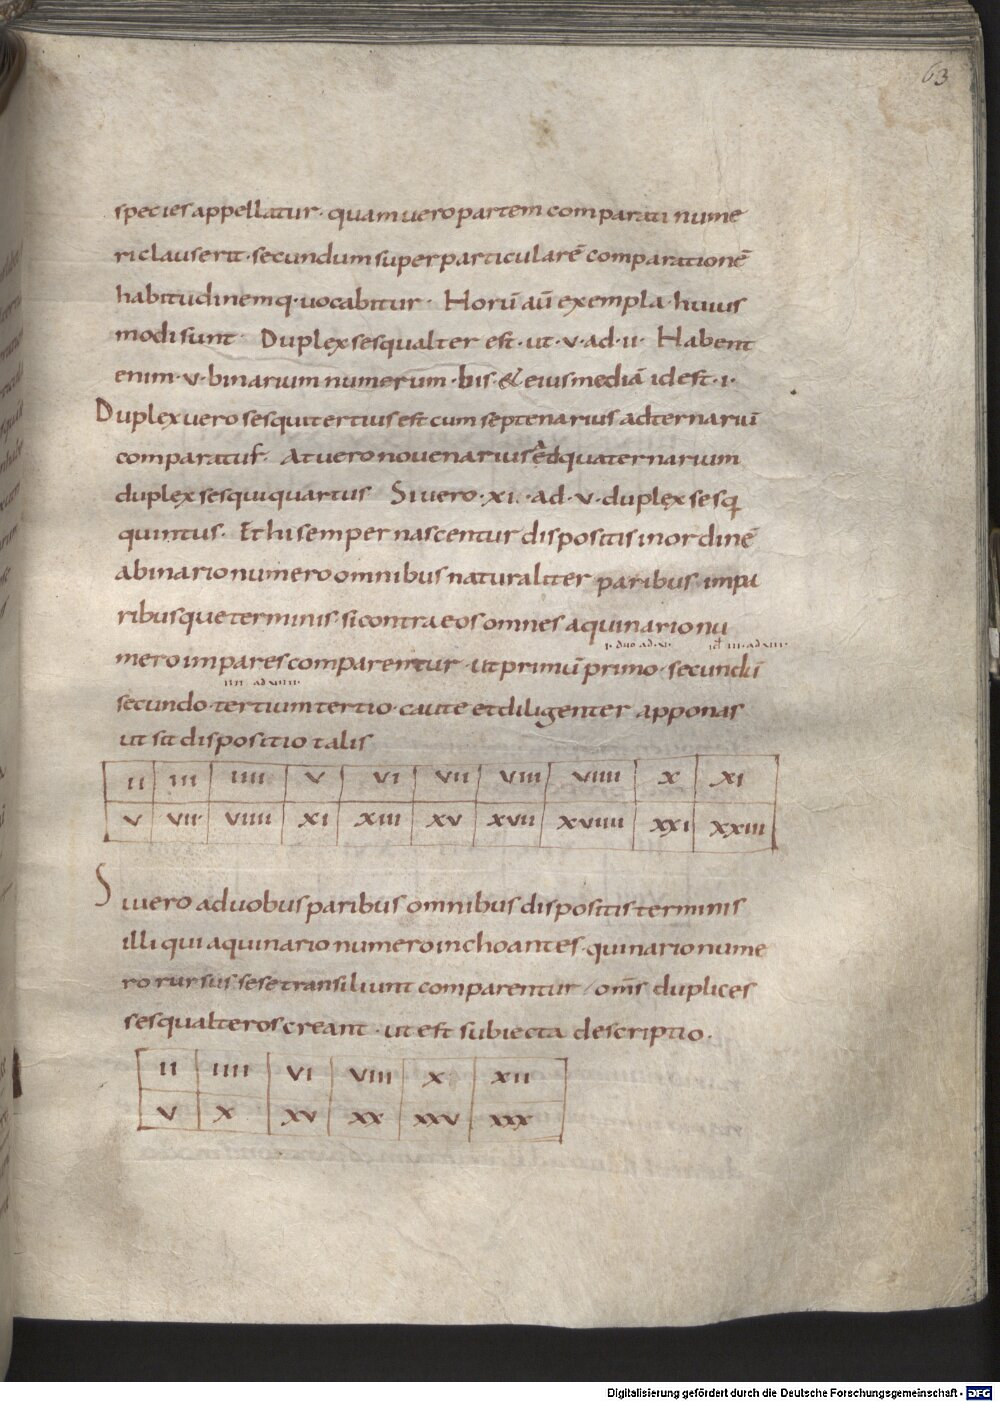 63
species appellatur · quam uero partem comparati nume
ri clauserit · secundum superparticularē comparationē
habitudinemq · uocabitur · Horū aū exempla · huius
modi sunt · Duplex sesqualter est · ut · v · ad · ii · Habent
enim · v · binarium numerum · bis · & eius mediā id est · i ·
Duplex uero sesquitertius est cum septenarius ad ternariū
comparatur · At uero nouenarius ad quaternarium
duplex sesquiquartus Si uero · xi · ad · v · duplex sesq
quintus · Et hi semper nascentur dispositis in ordinē
a binario numero omnibus naturaliter paribus · impa
ribusque terminis · si contra eos omnes a quinario nu
mero impares comparentur · ut primū primo · secundū
secundo · tertium tertio · caute et diligenter apponas
ut sit dispositio talis
ii iii iiii v vi vii viii viiii x xi
v vii viiii xi xiii xv xvii xviiii xxi xxiii
Si uero a duobus paribus omnibus dispositis terminis
illi qui a quinario numero inchoantes · quinario nume
ro rursus sese transiliunt comparentur / om̄s duplices
sesqualteros creant · ut est subiecta descriptio ·
ii iiii vi viii x xii
v x xv xx xxv xxx
Digitalisierung gefördert durch die Deutsche Forschungsgemeinschaft - DFG